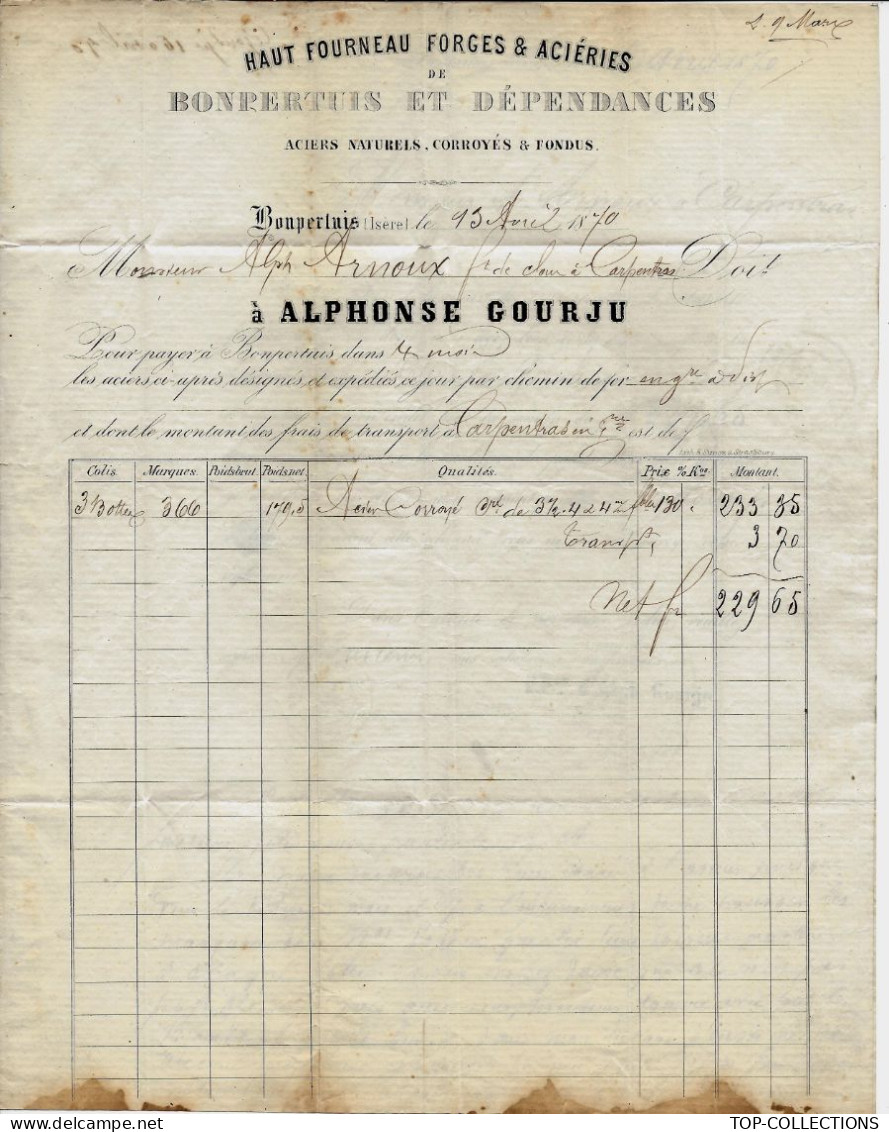 L. 9 Mars
HAUT FOURNEAU FORGES & ACIÉRIES
DE
BONPERTUIS ET DÉPENDANCES
ACIERS NATURELS, CORROYÉS & FONDUS.
Bonpertuis (Isère) le 13 Avril 1870
Monsieur Alph Arnoux à Carpentras Doit
à ALPHONSE GOURJU
Pour payer à Bonpertuis dans 4 mois
les aciers ci-après désignés, et expédiés ce jour par chemin de fer en gre
et dont le montant des frais de transport à Carpentras en gre est de f
Colis. Marques. Poids brut. Poids net. Qualités. Prix % Kos. Montant.
3 Bottes 366 179,5 Acier Corroyé de 3½ 130 233 35
Transpt, 3 70
Net fr 229 65
TOP-COLLECTIONS